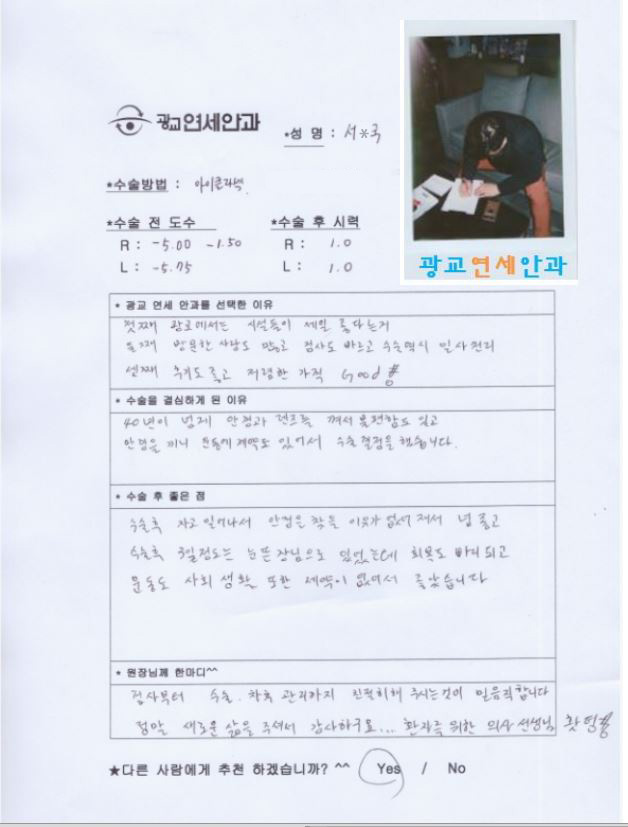 광교연세안과
*성 명 : 서*국
*수술방법 : 아이큰라섹
*수술 전 도수
*수술 후 시력
R : -5.00 -1.50
R : 1.0
L : -5.75
L : 1.0
광교연세안과
* 광교 연세 안과를 선택한 이유
첫째 광교에서는 시설등이 제일 좋다는거
둘째 방문한 사람도 많고 검사도 빠르고 수술역시 일사천리
셋째 후기도 좋고 저렴한 가격 Good
* 수술을 결심하게 된 이유
40년이 넘게 안경과 렌즈를 껴서 불편함도 있고
안경을 끼니 운동에 제약도 있어서 수술 결정을 했습니다.
* 수술 후 좋은 점
수술후 자고 일어나서 안경을 찾을 이유가 없어져서 넘 좋고
수술후 3일정도는 눈뜬장님으로 있었는데 회복도 빠리되고
운동도 사회 생활 또한 제약이 없어서 좋았습니다
* 원장님께 한마디^^
검사부터 수술. 차후 관리까지 친절히해 주시는것이 믿음직합니다
정말 새로운 삶을 주셔서 감사하구요... 환자를 위한 의사 선생님
★다른 사람에게 추천 하겠습니까? ^^ Yes / No